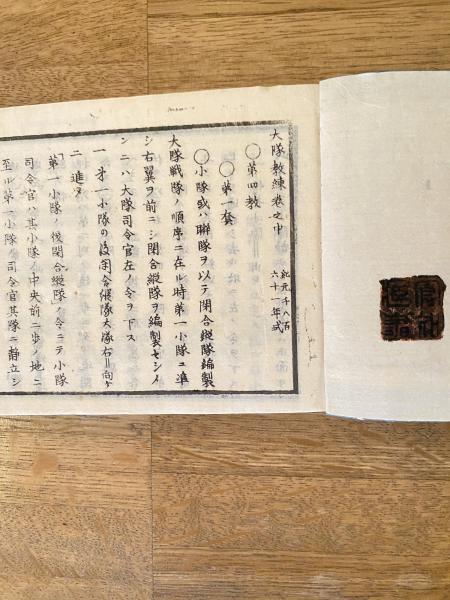 大隊教練巻之中
紀元千八百
六十一年式
〇第四教
〇第一套
〇小隊或ハ聯隊ヲ以テ閉合縦隊編製
大隊戦隊ノ順序ニ在ル時第一小隊ニ準
シ右翼ヲ前ニシ閉合縦隊ヲ編製セシメ
ンニハ大隊司令官左ノ令ヲ下ス
一 第一小隊の後閉合縦隊大隊右＝向ケ
二 進メ
第一小隊ノ後閉合縦隊ノ令ニテ小隊
司令官ハ其小隊ノ中央前二歩ノ地ニ
至ル第一小隊ノ司令官其隊ニ静立シ